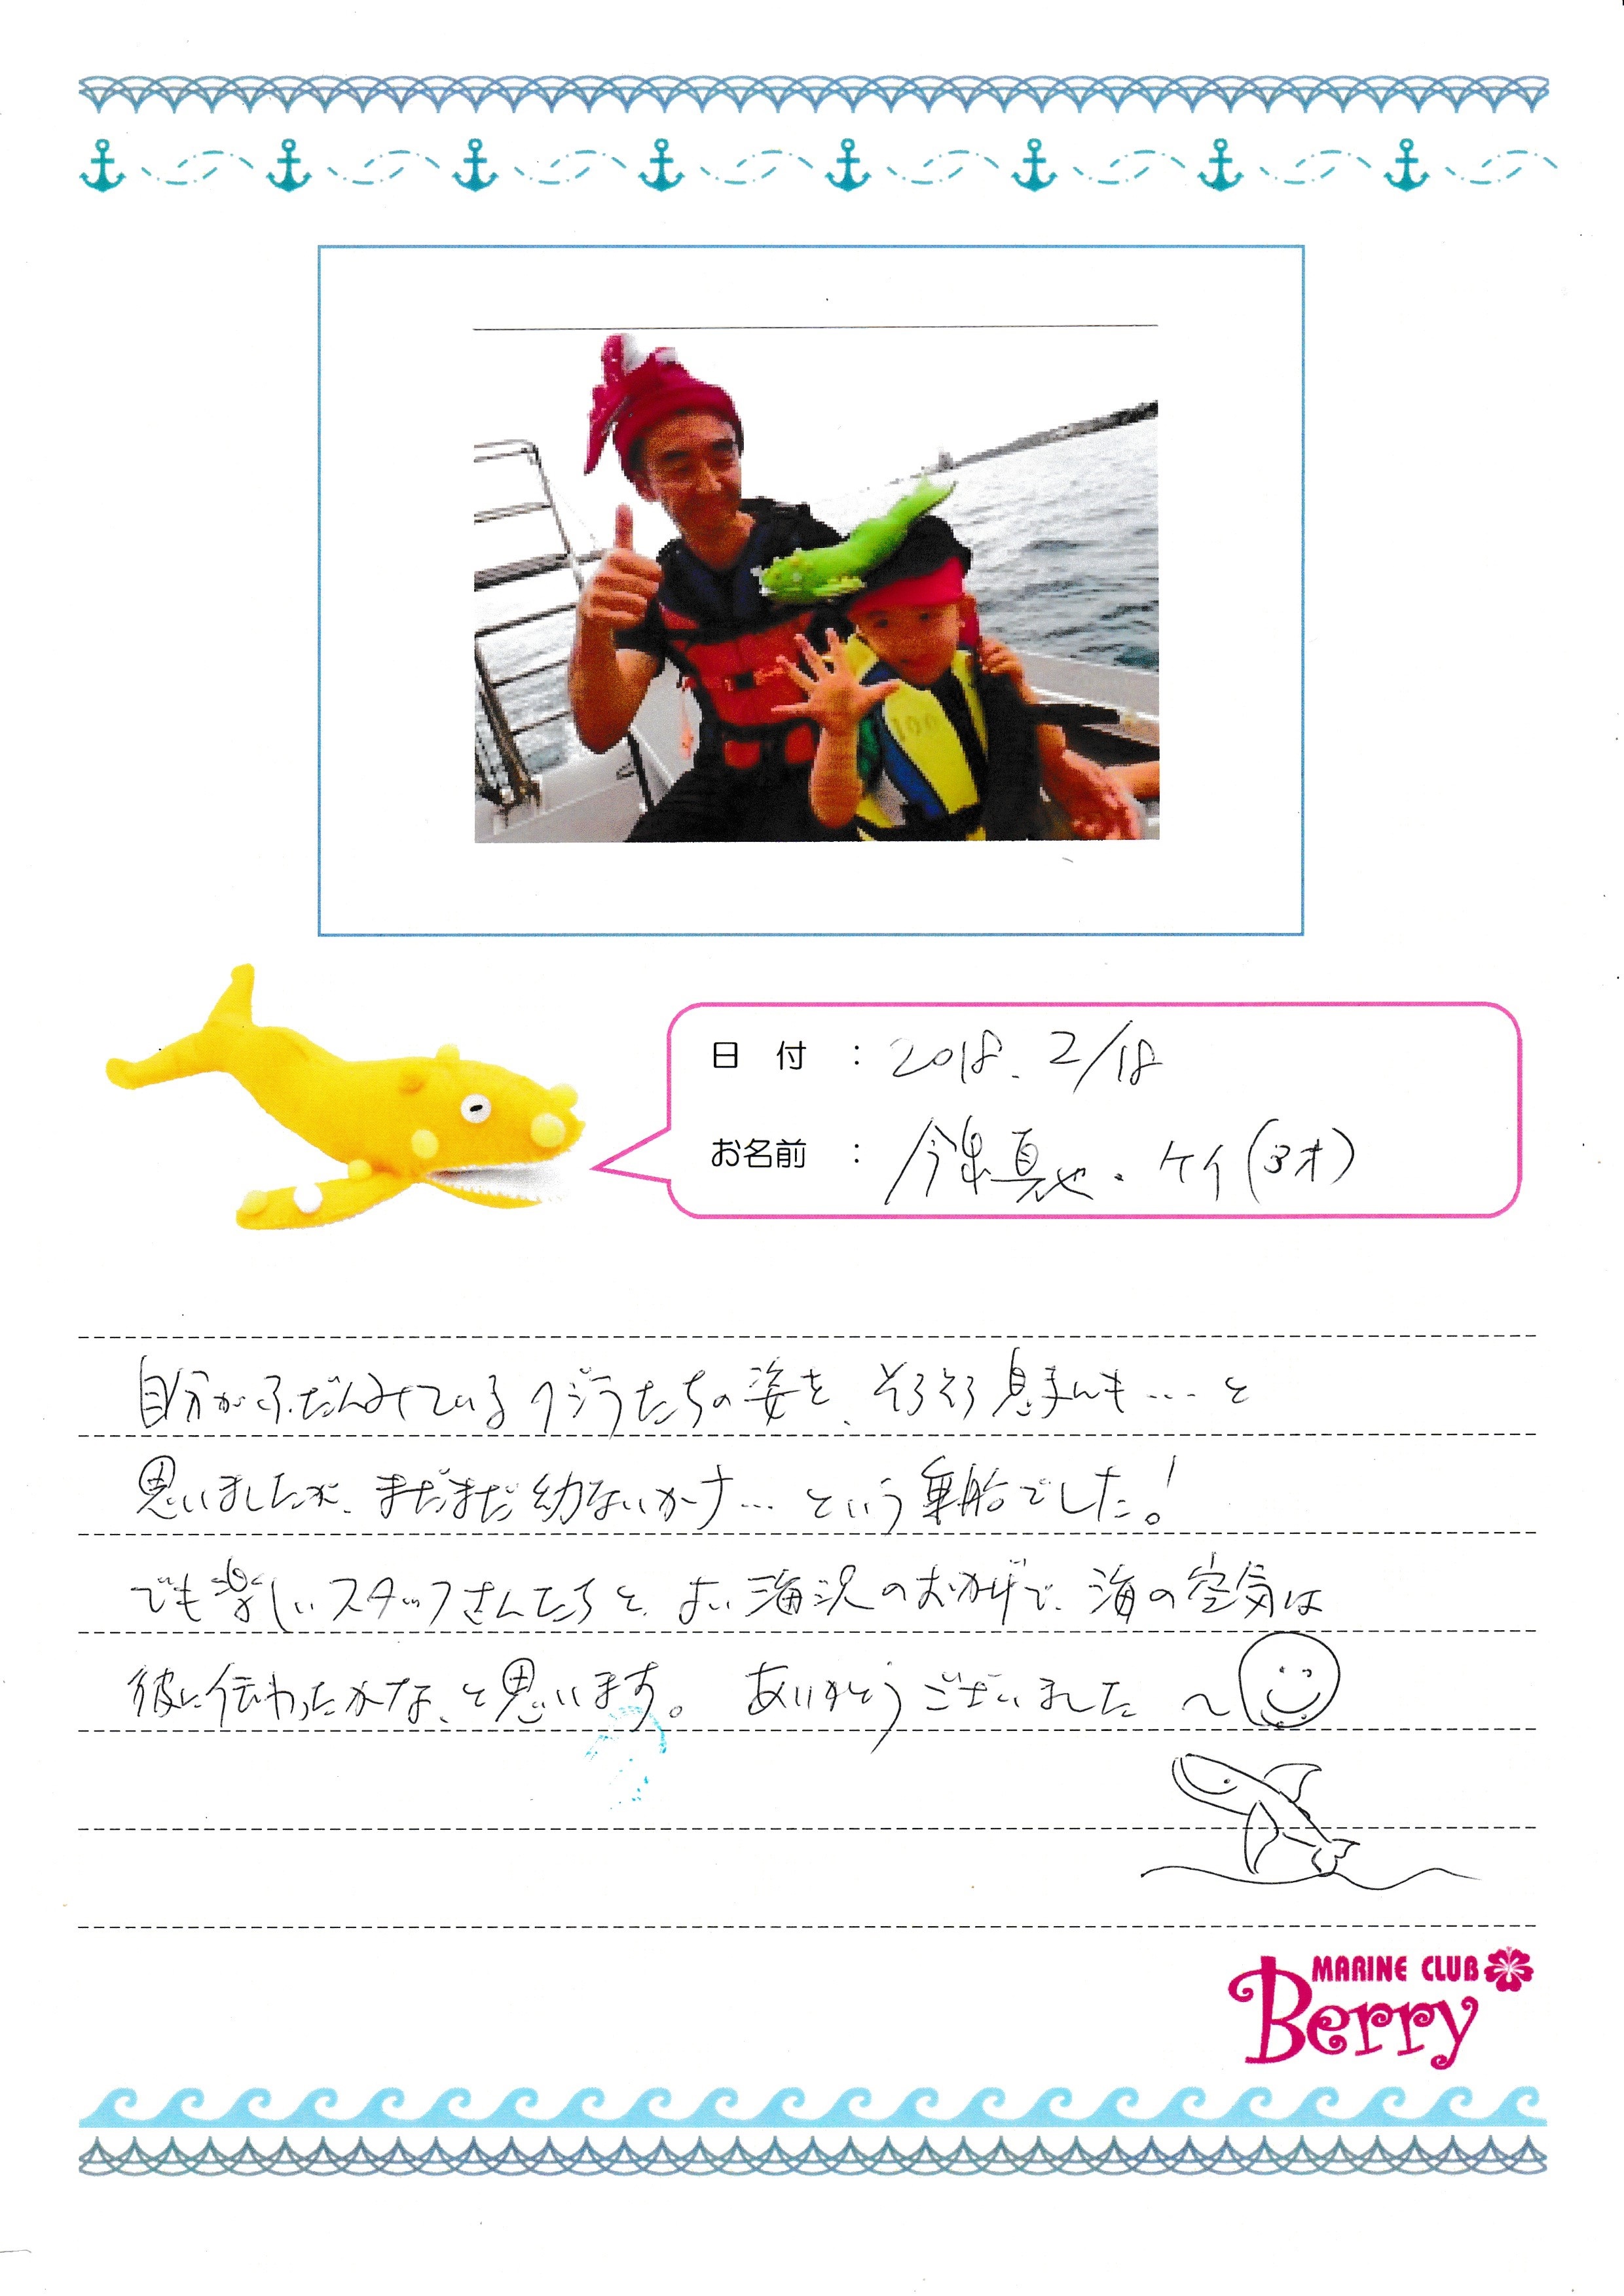 100
日 付 : 2018. 2/18
お名前 : 今泉真也・ケイ(3才)
自分がふだんみているクジラたちの姿を、そろそろ息子くんも…と
思いましたが、まだまだ幼ないかナ…という乗船でした。!
でも楽しいスタッフさんたちと、よい海況のおかげで、海の空気は
彼に伝わったかな、と思います。 ありがとうございました ～
MARINE CLUB
Berry